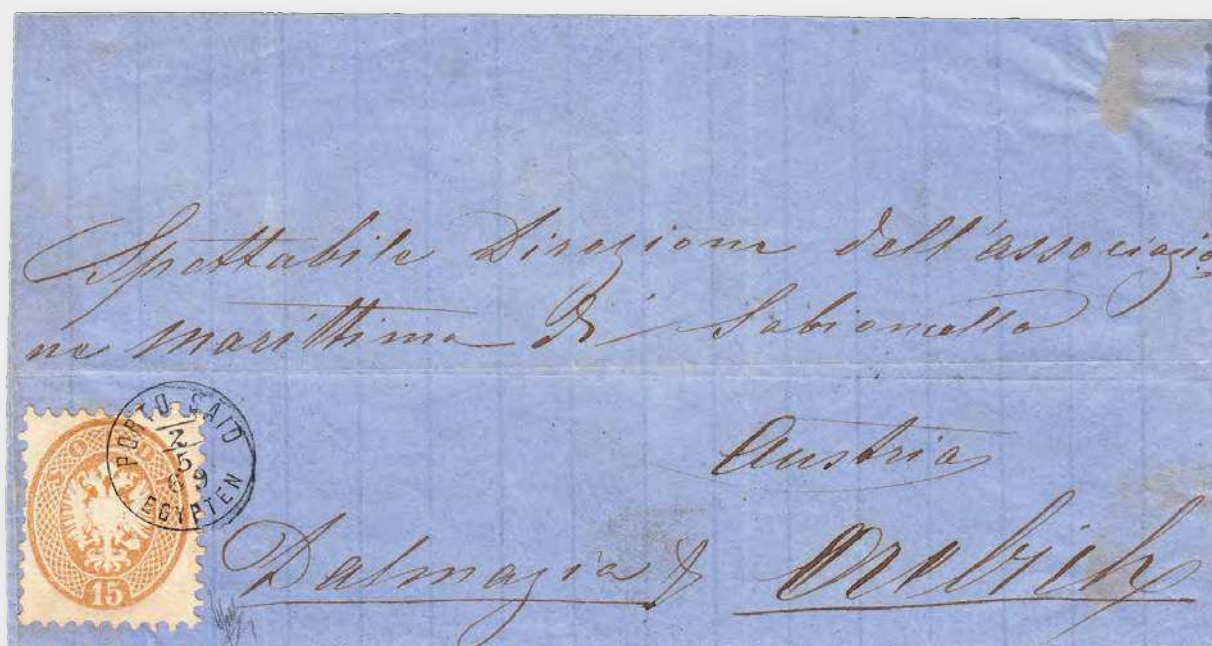 Spettabile Direzione dell'associazio
ne marittima di Sabioncello
Austria
Dalmazia & Orebich
PORTO SAID
2/5
69
EGYPTEN
SOLDI
15